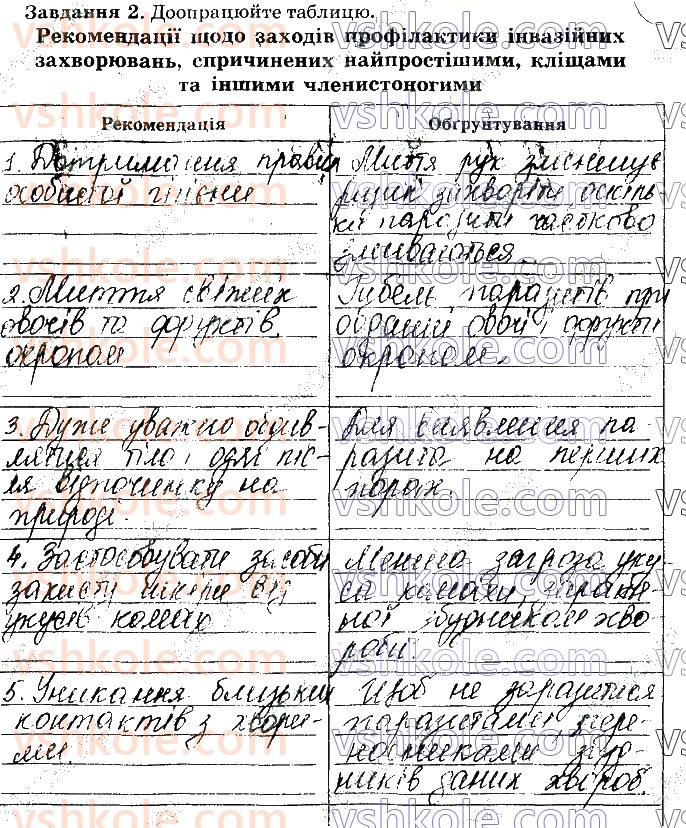 Завдання 2. Доопрацюйте таблицю.
Рекомендації щодо заходів профілактики інвазійних
захворювань, спричинених найпростішими, кліщами
та іншими членистоногими
Рекомендація
1. Дотримання правил
особистої гігієни
2. Миття свіжих
овочів та фруктів
окропом
3. Дуже уважно огляд
тіло і одяг піс-
ля відпочинку на
природі.
4. Застосовувати засоби
захисту шкіри від
укусів комах
5. Уникання близьких
контактів з хвори-
ми.
Обґрунтування
Миття рук зменшує
ризик захворіти оскіль
ки паразити частково
змиваються.
Гибель паразитів при
овочі і фрукти
окропом.
Для виявлення па
разита на перших
порах.
Менша загроза уку
су комахи,
ної збудником хво
роби.
Щоб не заразитися
паразитами, пере-
носниками
даних хвороб.
vshkole.com